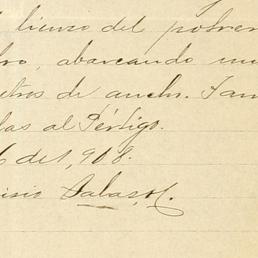 lienzo del potrer
ro, abarcando un
etros de ancho. Tam
las al Pértigo.
6 de 1,908.
isio Salazar.